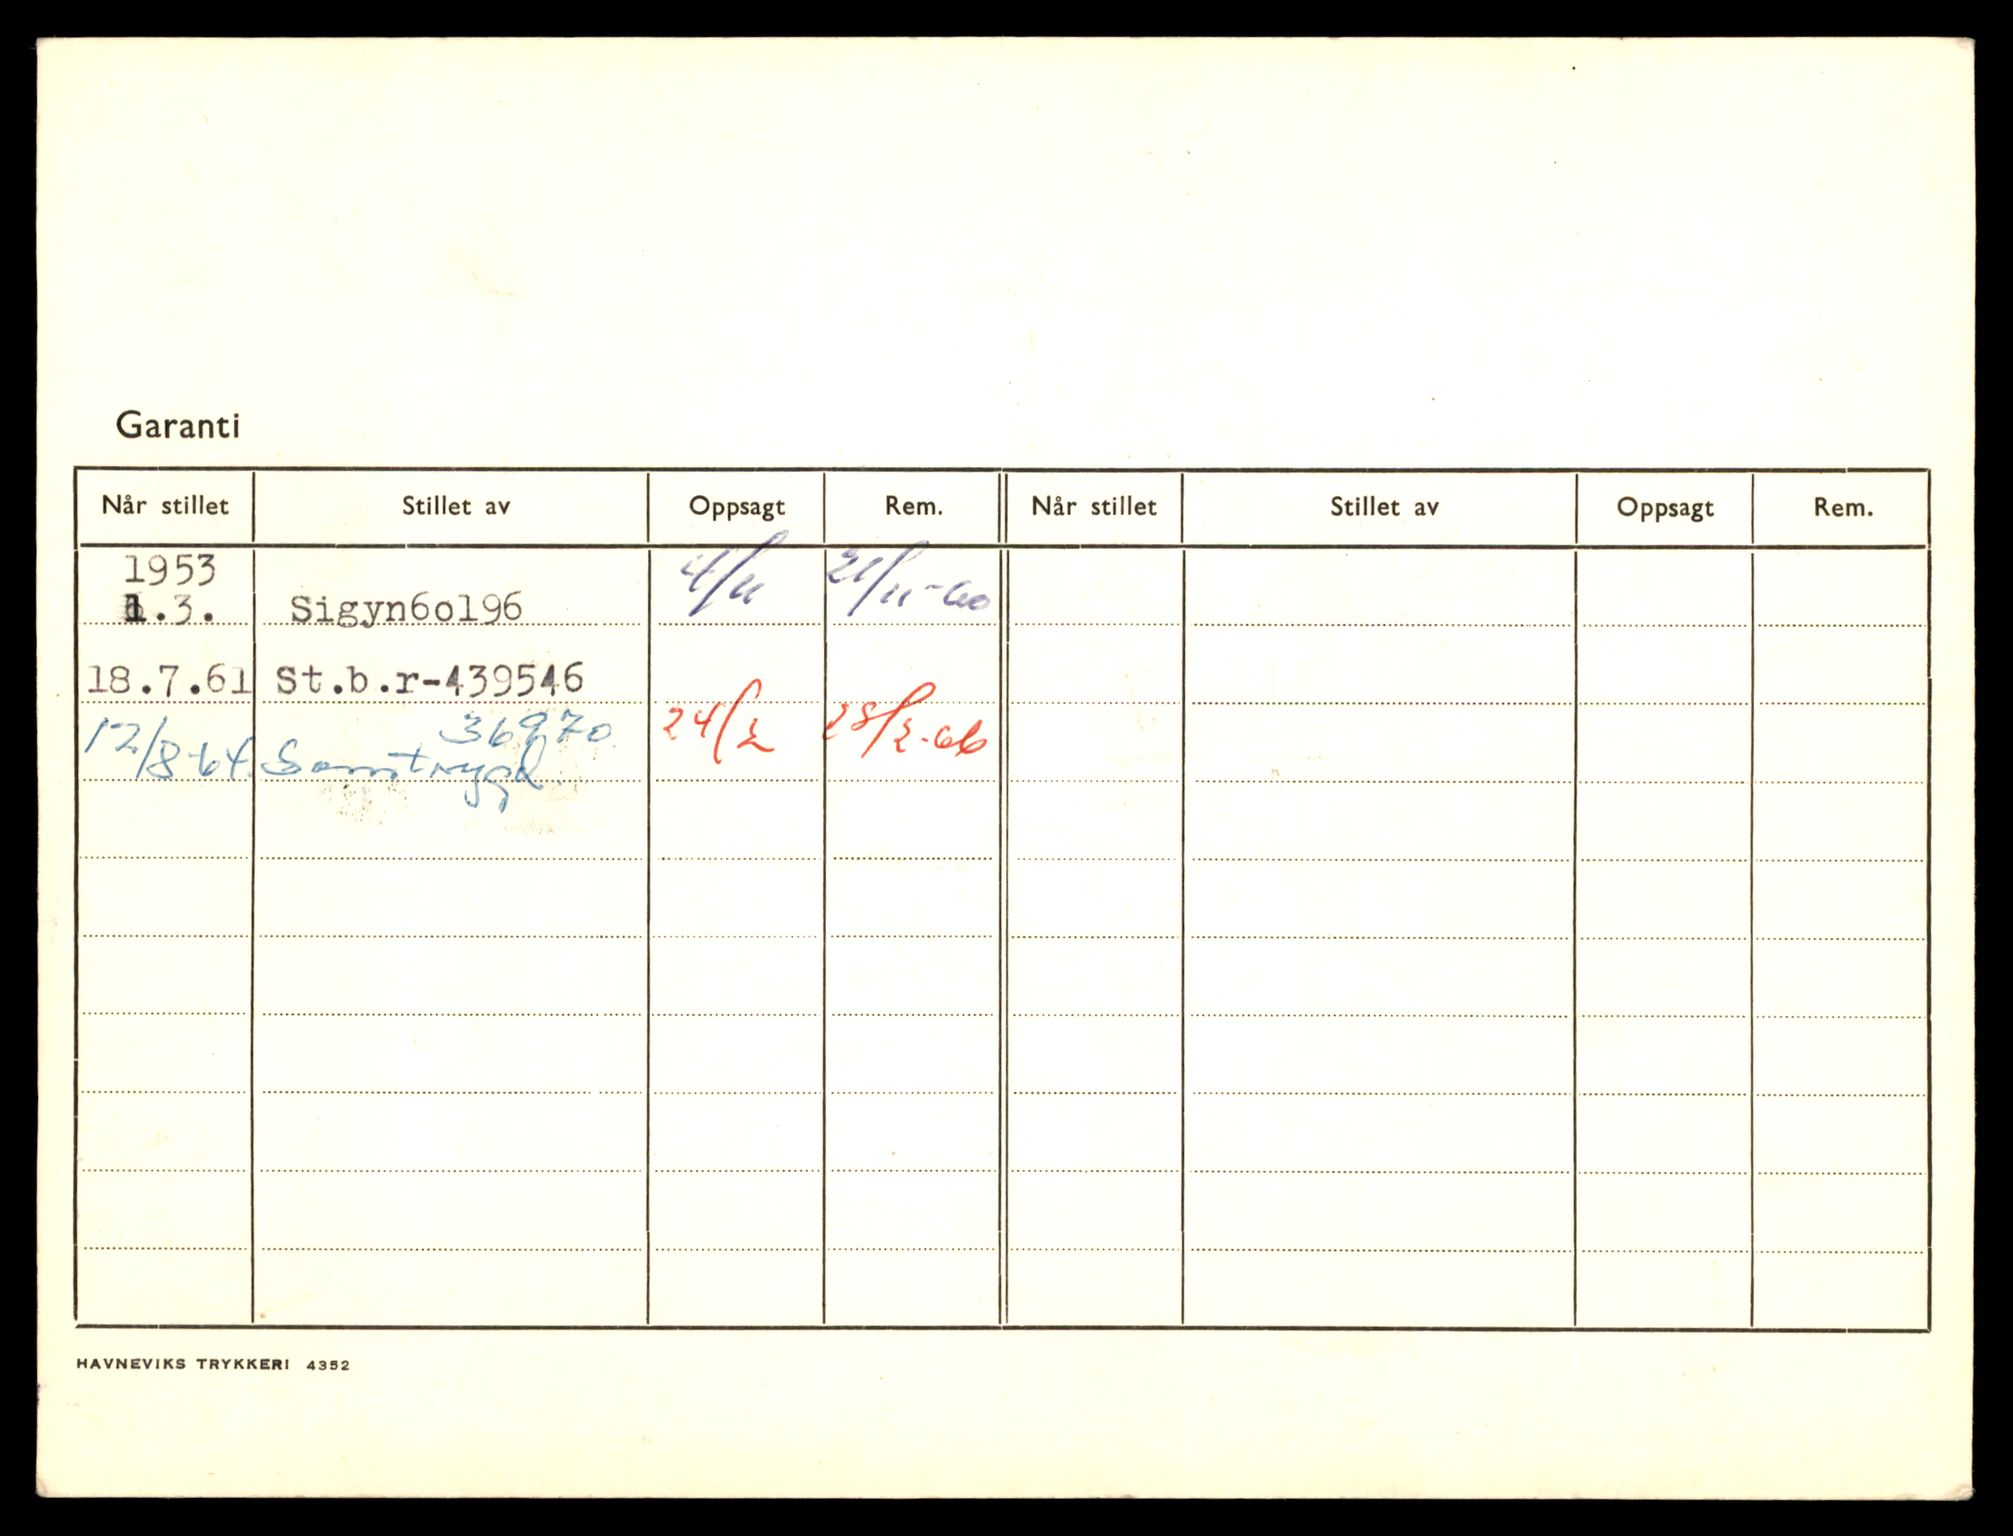 Garanti
Når stillet Stillet av Oppsagt Rem. Når stillet Stillet av Oppsagt Rem.
1953
1.3. Sigyn6o196 4/11 21/11-60
18.7.61 St.b.r-439546
36970
12/8-64. Samtrygd. 24/2 28/2-66
HAVNEVIKS TRYKKERI 4352